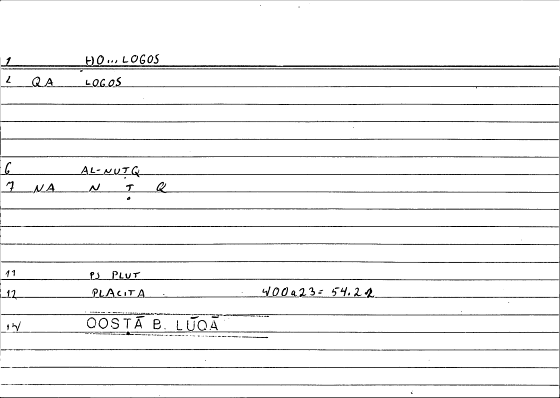 1 HO...LOGOS
2 QA LOGOS
6 AL-NUṬQ
7 NA N Ṭ Q
11 PS PLUT
12 PLACITA 400a23= 54.21
14 QOSṬĀ B. LŪQĀ